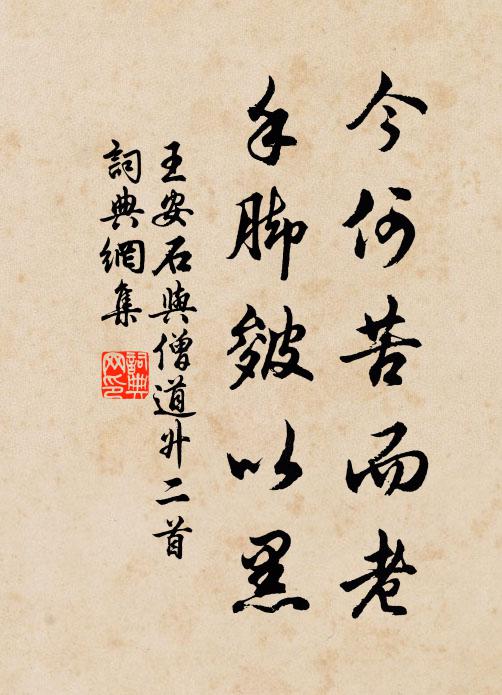 今何苦而老
手脚皴以黑
王安石與僧道升二首
詞典網集
詞典網印